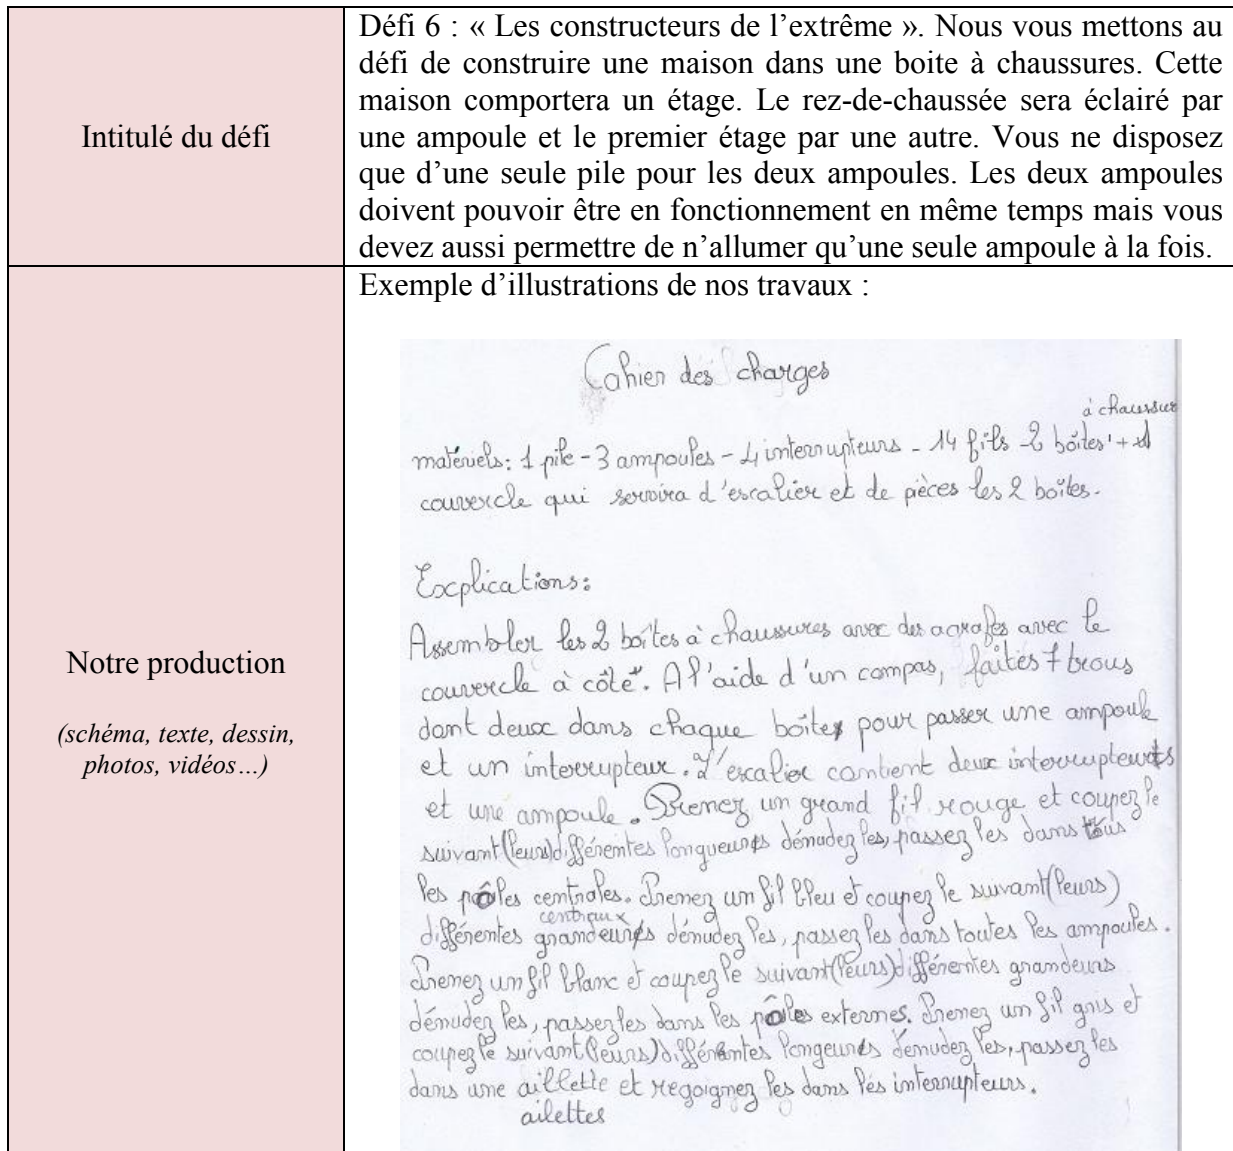 Intitulé du défi
Défi 6 : « Les constructeurs de l’extrême ». Nous vous mettons au
défi de construire une maison dans une boite à chaussures. Cette
maison comportera un étage. Le rez-de-chaussée sera éclairé par
une ampoule et le premier étage par une autre. Vous ne disposez
que d’une seule pile pour les deux ampoules. Les deux ampoules
doivent pouvoir être en fonctionnement en même temps mais vous
devez aussi permettre de n’allumer qu’une seule ampoule à la fois.
Notre production
(schéma, texte, dessin,
photos, vidéos…)
Exemple d’illustrations de nos travaux :
Cahier des charges
à chaussur
matériels: 1 pile - 3 ampoules - 4 interrupteurs - 14 fils - 2 boîtes + 1
couvercle qui servira d'escalier et de pièces les 2 boîtes.
Explications:
Assembler les 2 boîtes à chaussures avec des agrafes avec le
couvercle à côté. A l'aide d'un compas, faites 7 trous
dont deux dans chaque boîte pour passer une ampoule
et un interrupteur. L'escalier contient deux interrupteurs
et une ampoule. Prenez un grand fil rouge et coupez le
suivant (leurs) différentes longueurs démudez les, passez les dans tous
les pôles centrales. Prenez un fil bleu et coupez le suivant (leurs)
centraux
différentes grandeurs démudez les, passez les dans toutes les ampoules.
Prenez un fil blanc et coupez le suivant (leurs) différentes grandeurs
démudez les, passez les dans les pôles externes. Prenez un fil gris et
coupez le suivant (leurs) différentes longeurs démudez les, passez les
dans une aillette et regoignez les dans les interrupteurs.
ailettes